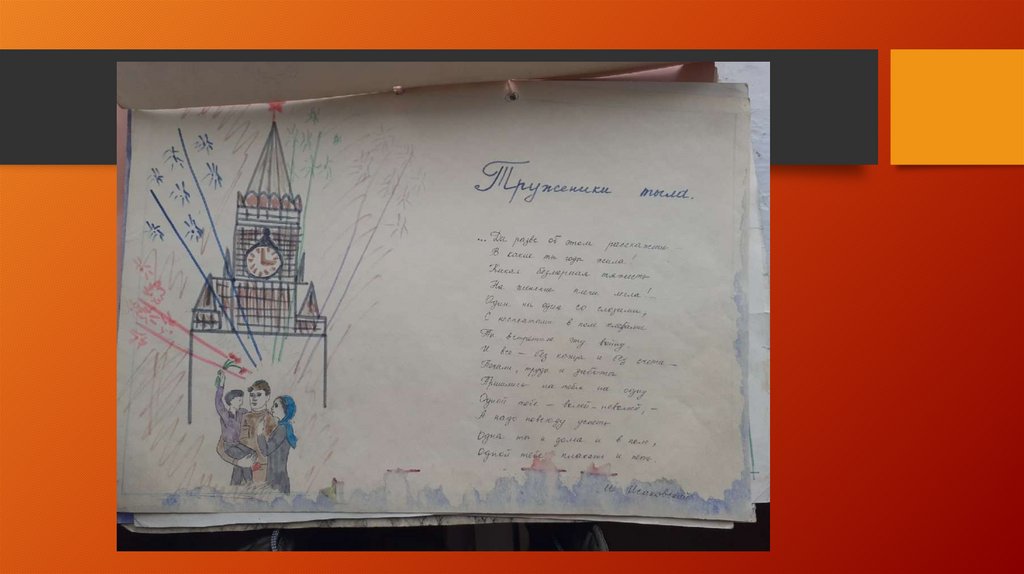 Труженики тыла.
... Да разве об этом расскажешь —
В какие ты годы жила!
Какая безмерная тяжесть
На женские плечи легла!
Один на один со слезами,
С несжатыми в поле хлебами
Ты встретила эту войну.
И все — без конца и без счета —
Печали, труды и заботы
Пришлись на тебя на одну
Одной тебе — волей-неволей, —
А надо повсюду успеть
Одна ты и дома и в поле,
Одной тебе плакать и петь.
Исаковский